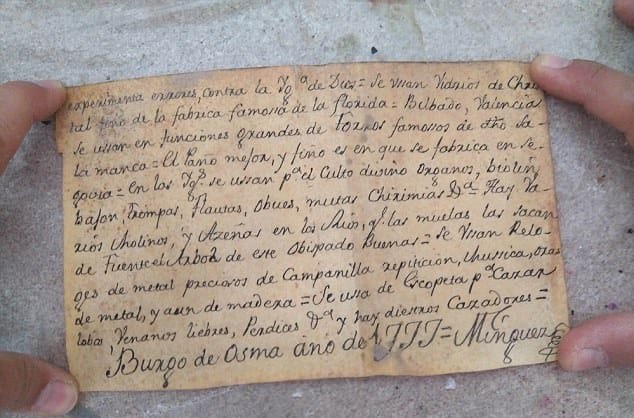 experimenta errores, contra la Ygª de Dios = Se vssan Vidrios de Chris
tal fino de la fabrica famossa de la florida = Bilbado, Valencias
Se ussan en funciones grandes de Torros famossos de dho Sa-
lamanca = El Pano mejor, y fino es en que se fabrica en Se-
govia = en las Ygˢ se ussan pª el Culto divino Organos, biolin,
bajon, trompas, flautas, obues, mutas Chirimias &ª = Hay Va-
rios Molinos, y Azeñas en los Rios, q.ᵉ las muelas las sacan
de Fuentcel Arbol de este Obispado Buenas = Se Vssan Relo-
ges de metal preciosos de Campanilla repitición, Mussica, otros
de metal, y aun de madera = Se ussa de Escopeta pª Cazar
lobos, Venanos liebres, Perdices &ª y hay diestros Cazadores =
Burgo de Osma año de 1777 = Minguez